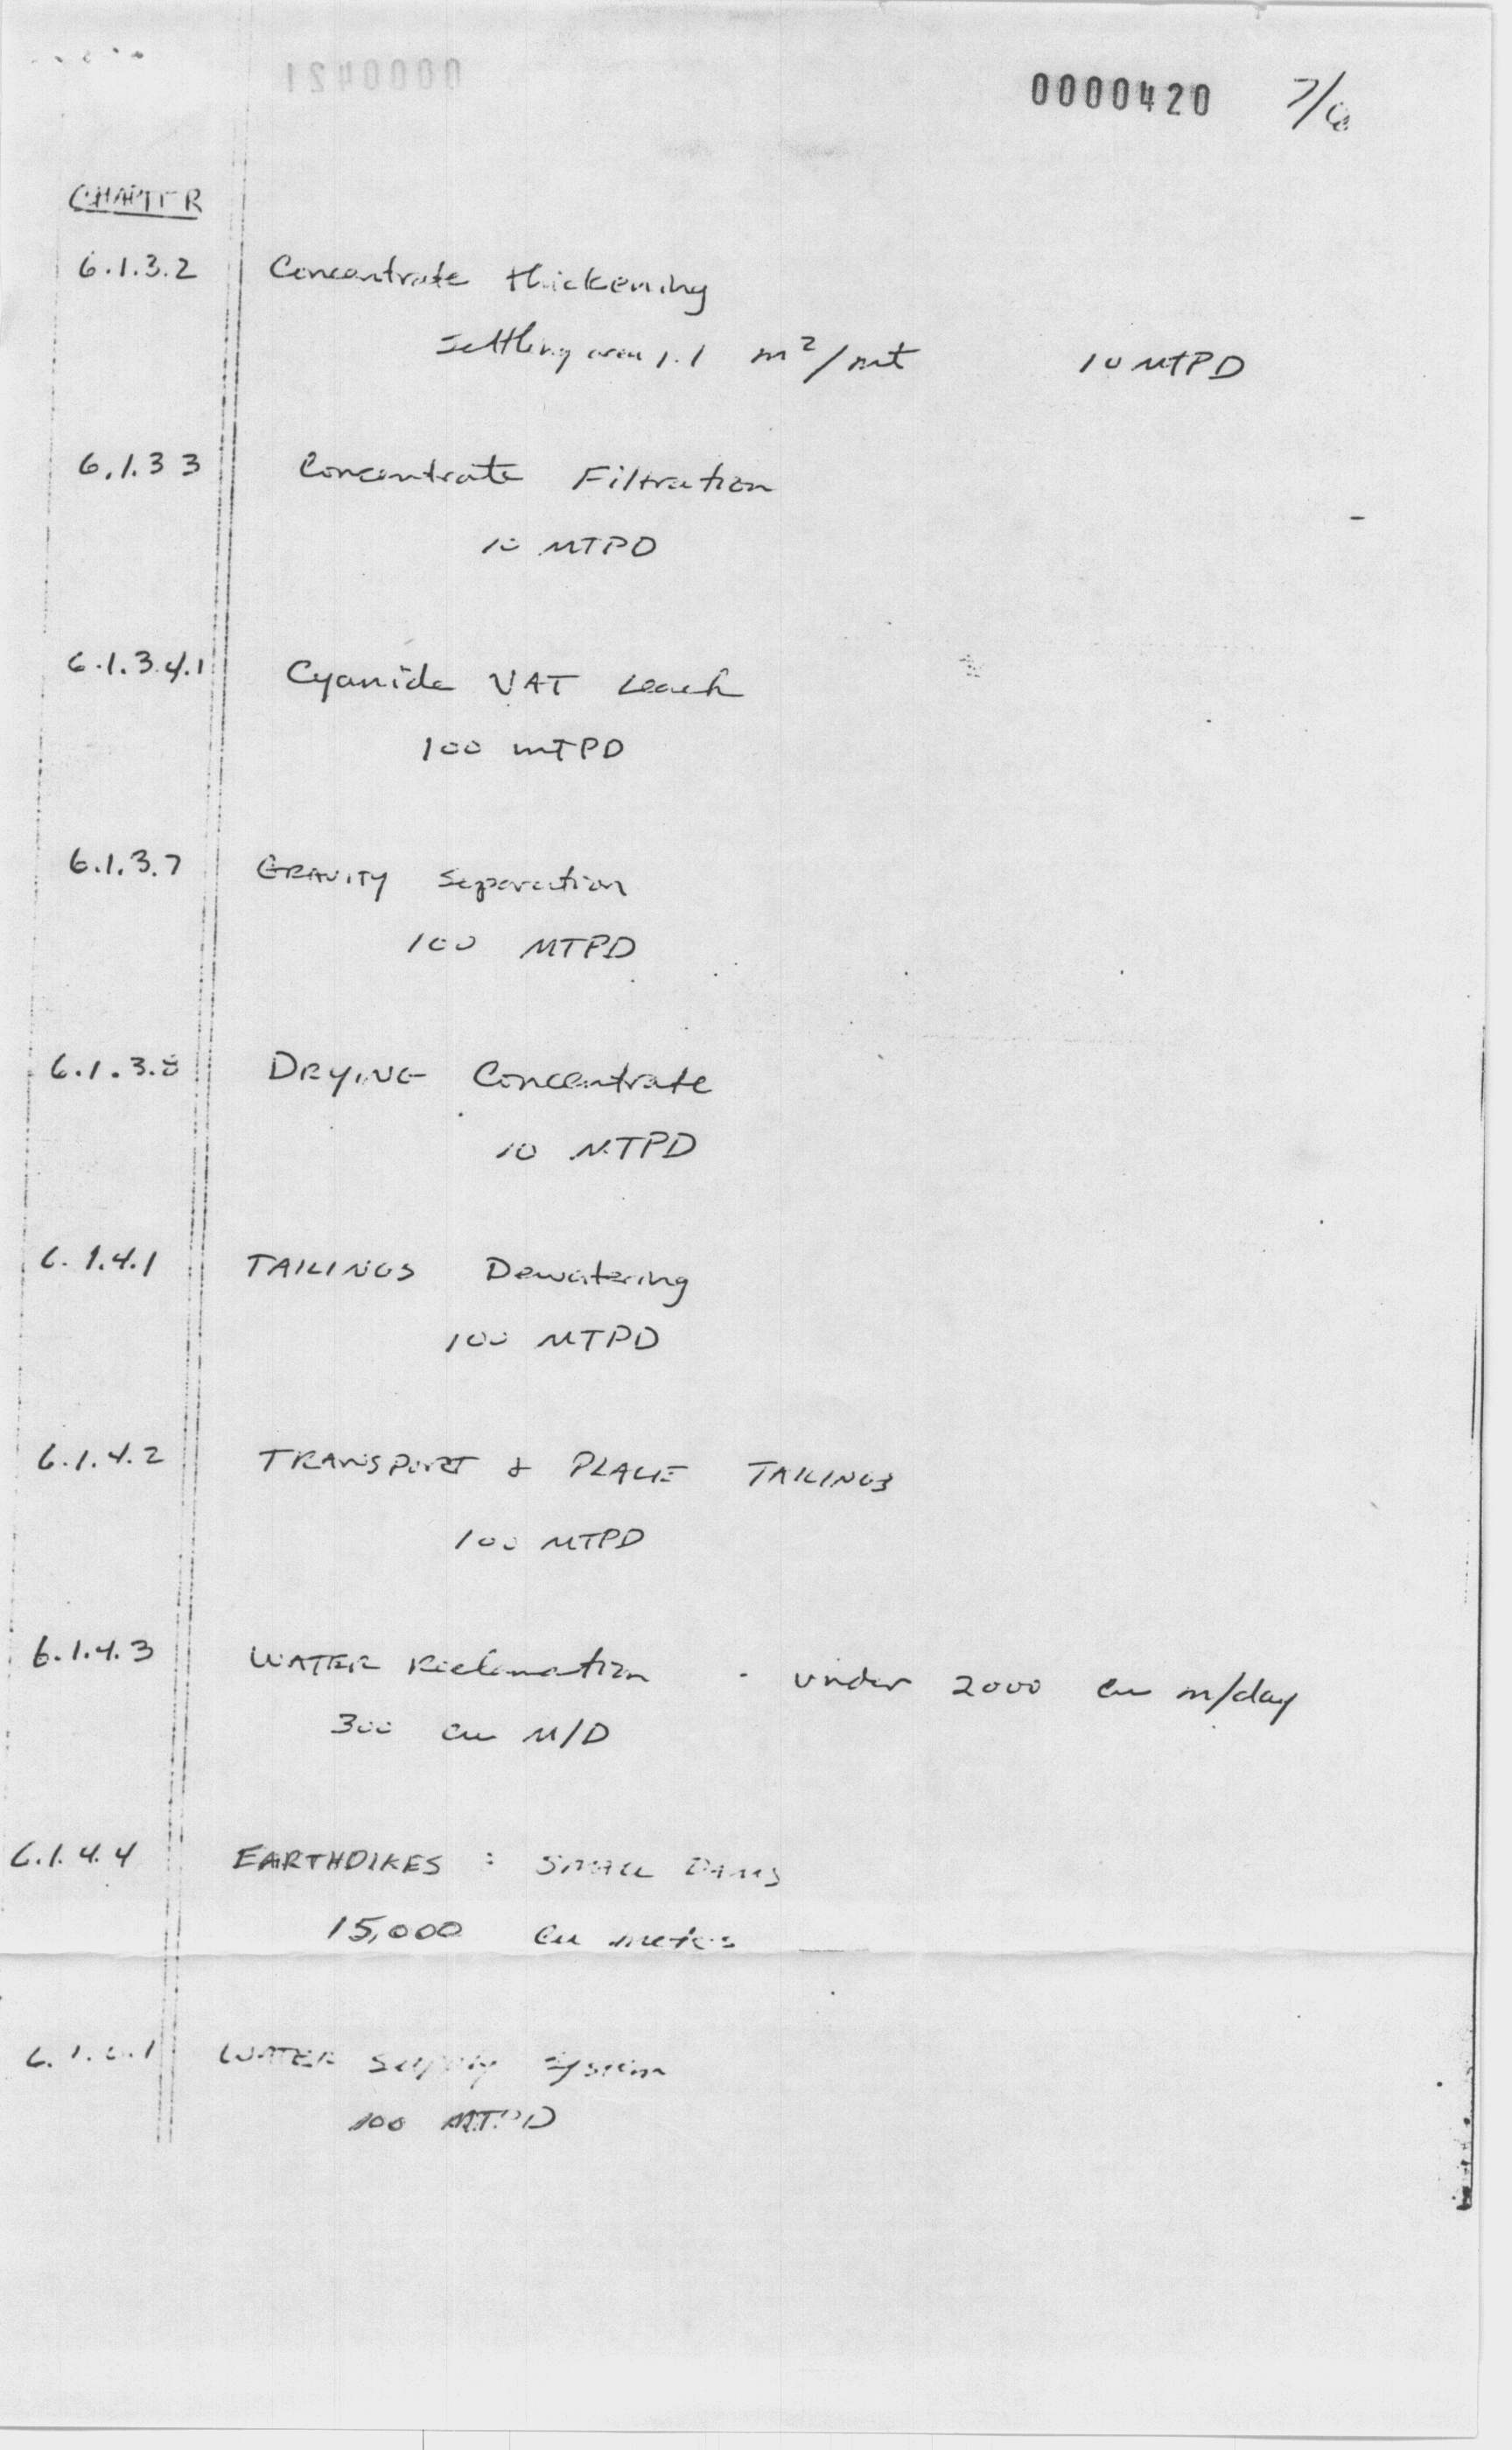 0000421
0000420 7/8
CHAPTER
6.1.3.2 Concentrate thickening
Settling area 1.1 m²/mt 10 MTPD
6.1.3 3 Concentrate Filtration
10 MTPD
6.1.3.4.1 Cyanide VAT Leach
100 mTPD
6.1.3.7 GRAVITY Separation
100 MTPD
6.1.3.8 DRYING Concentrate
10 MTPD
6.1.4.1 TAILINGS Dewatering
100 MTPD
6.1.4.2 TRANSPORT & PLACE TAILINGS
100 MTPD
6.1.4.3 WATER Reclamation - under 2000 cu m/day
300 cu M/D
6.1.4.4 EARTHDIKES : SMALL DAMS
15,000 cu meters
WATER Supply System
100 MTPD